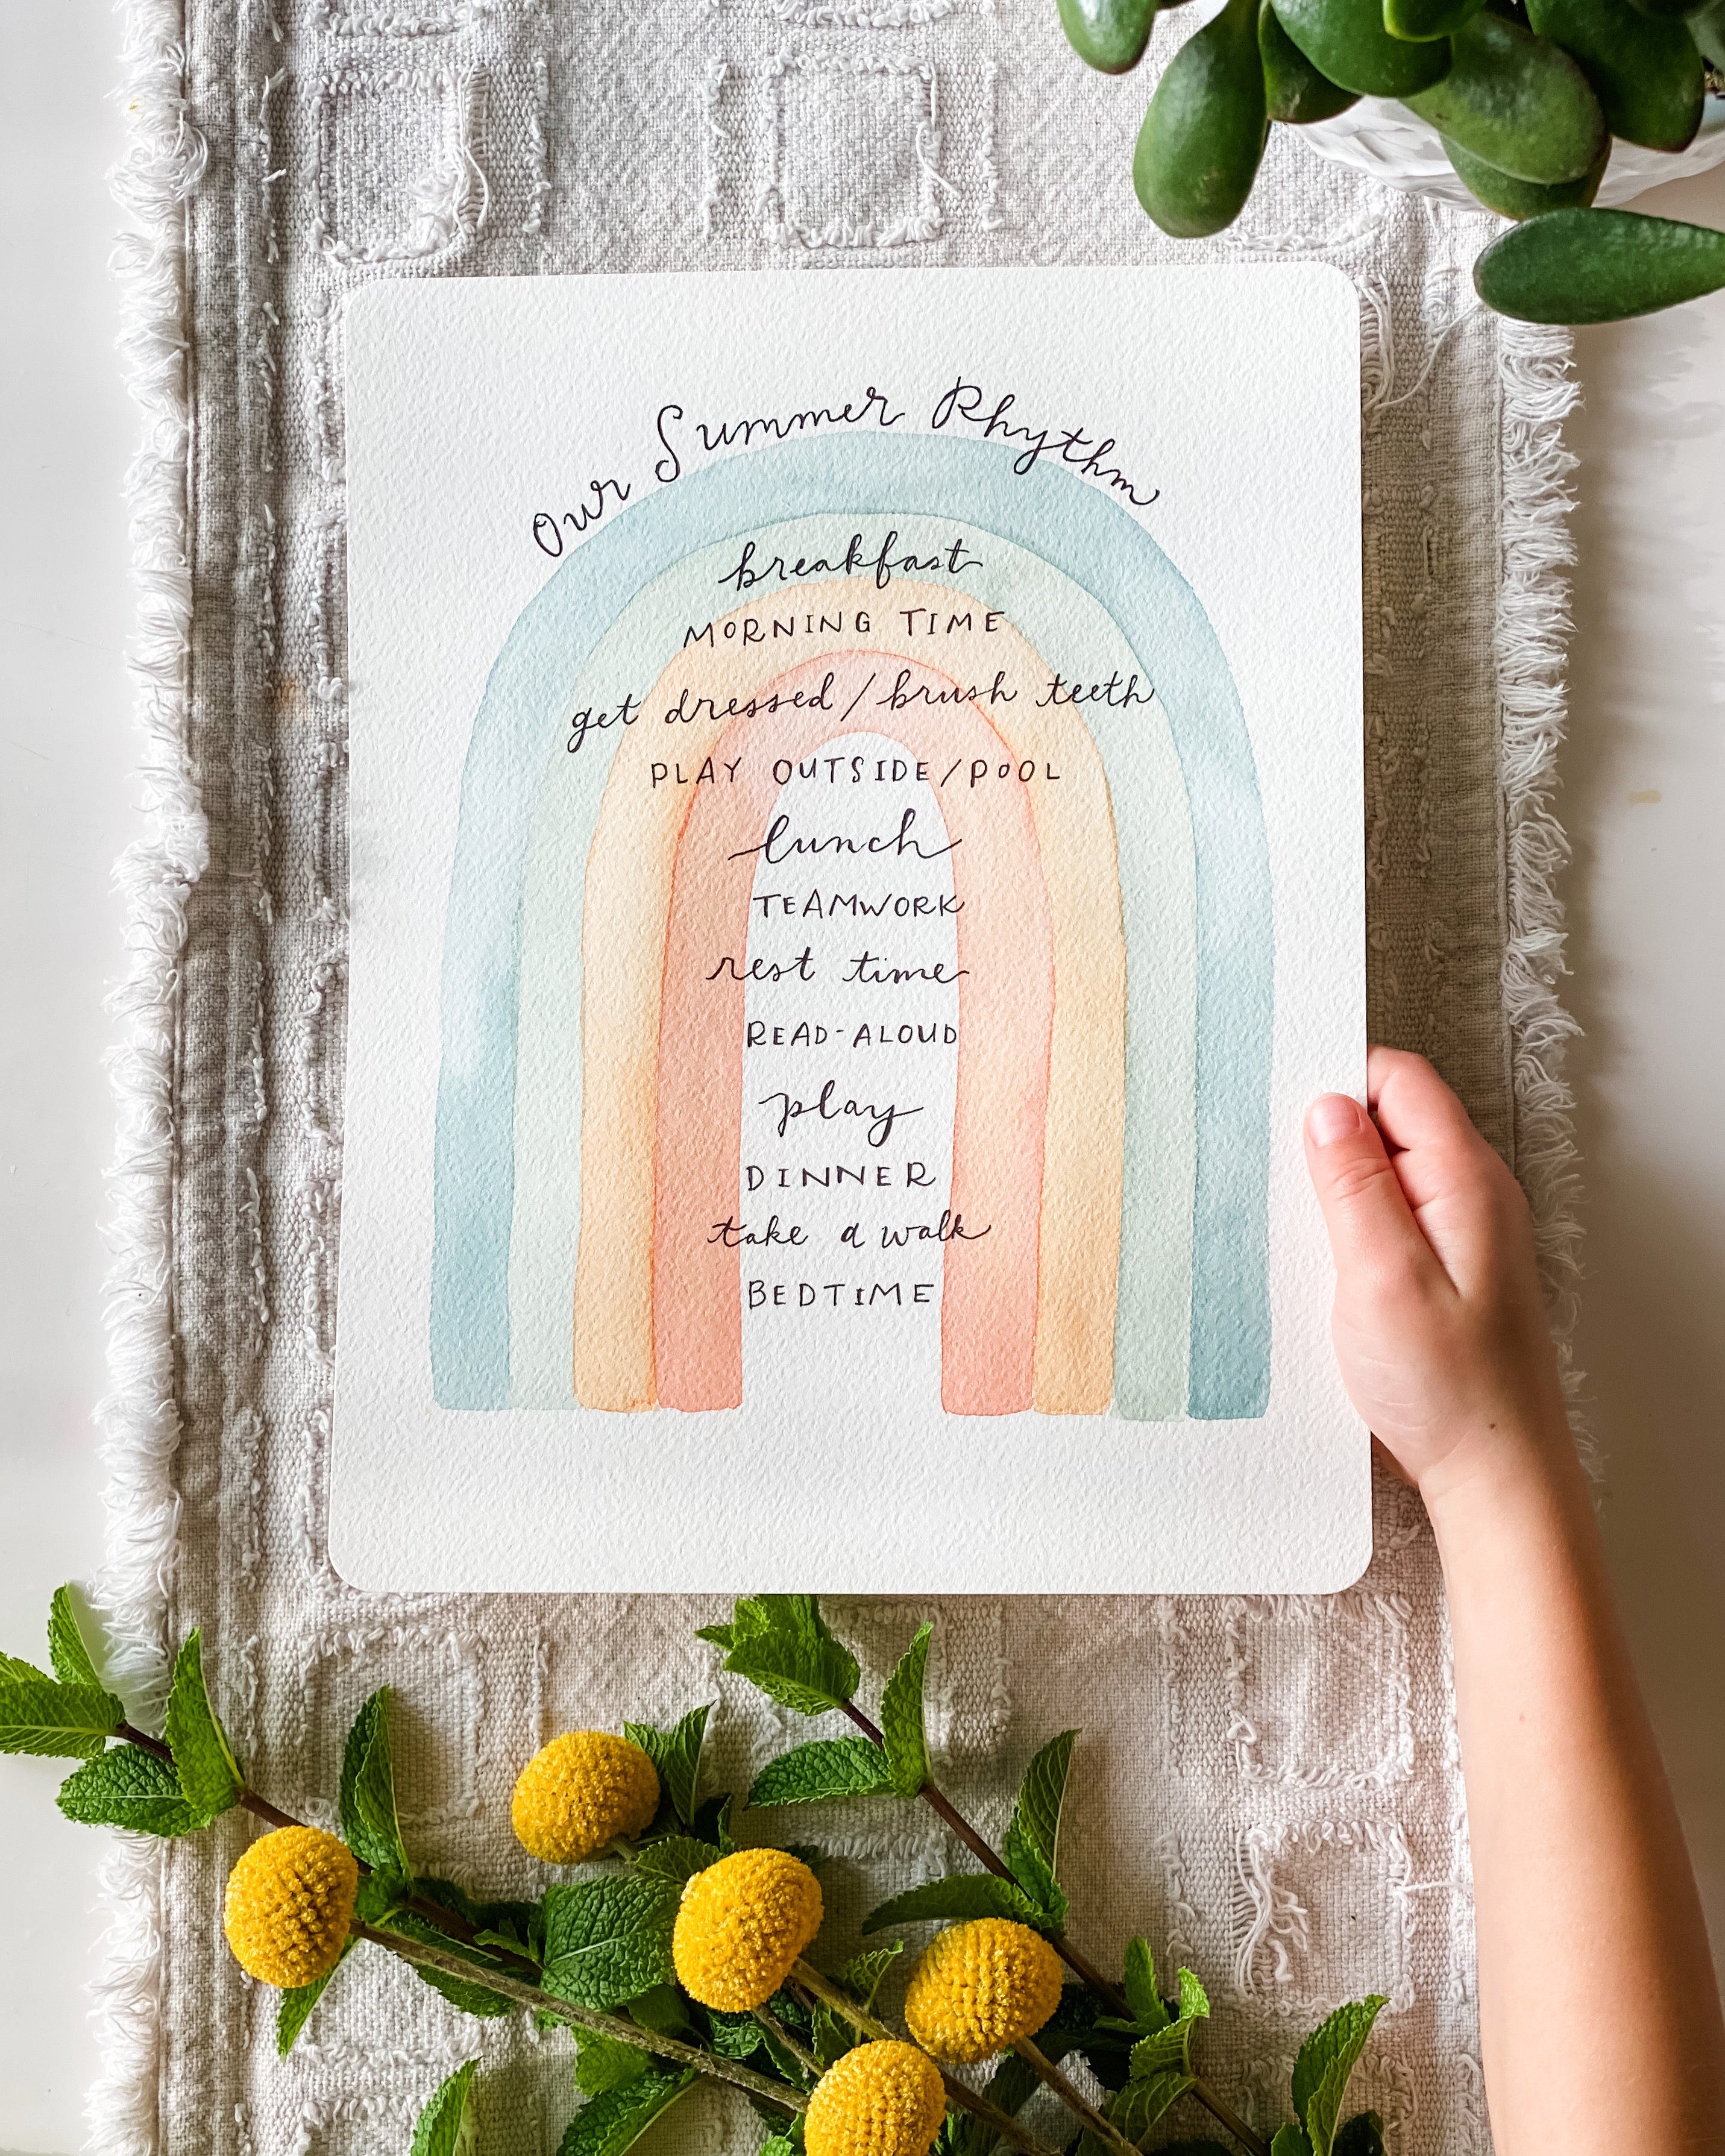 Our Summer Rhythm
breakfast
MORNING TIME
get dressed / brush teeth
PLAY OUTSIDE/POOL
lunch
TEAMWORK
rest time
READ-ALOUD
play
DINNER
take a walk
BEDTIME